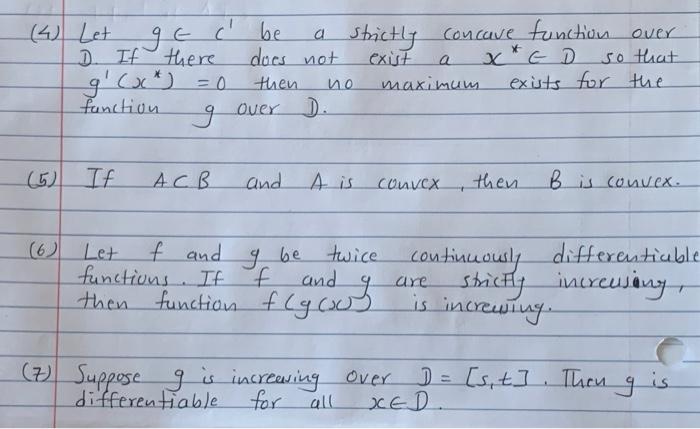 (4) Let g ∈ C' be a strictly concave function over
D. If there does not exist a x* ∈ D so that
g'(x*) = 0 then no maximum exists for the
function g over D.
(5) If A ⊂ B and A is convex, then B is convex.
(6) Let f and g be twice continuously differentiable
functions. If f and g are strictly increasing,
then function f(g(x)) is increasing.
(7) Suppose g is increasing over D = [s,t]. Then g is
differentiable for all x ∈ D.